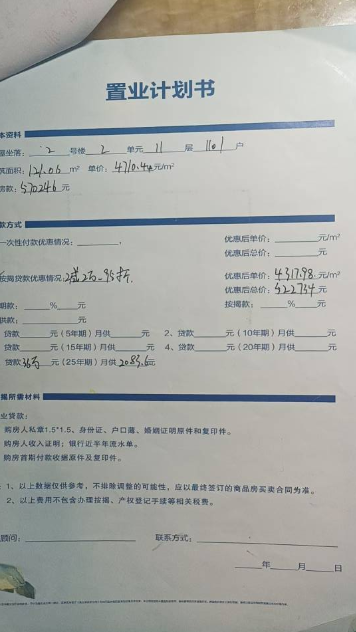 置业计划书
本资料
屋坐落：2 号楼 2 单元 11 层 1101 户
筑面积：121.06 m² 单价：4710.44元/m²
房款：570246 元
款方式
一次性付款优惠情况：________，
优惠后单价：________元/m²
优惠后总价：________元
按揭贷款优惠情况：2万、95折
优惠后单价：4317.98元/m²
优惠后总价：522734元
期款：____%____元 按揭款：____%____元
供款：________元
贷款____元（5年期）月供____元 2、贷款____元（10年期）月供____元
贷款____元（15年期）月供____元 4、贷款____元（20年期）月供____元
贷款36万元（25年期）月供2083.6元
揭所需材料
业贷款：
购房人私章1.5*1.5、身份证、户口薄、婚姻证明原件和复印件。
购房人收入证明；银行近半年流水单。
购房首期付款收据原件及复印件。
：1、以上数据仅供参考，不排除调整的可能性，应以最终签订的商品房买卖合同为准。
2、以上费用不包含办理按揭、产权登记手续等相关税费。
顾问：________ 联系方式：________
____年____月____日